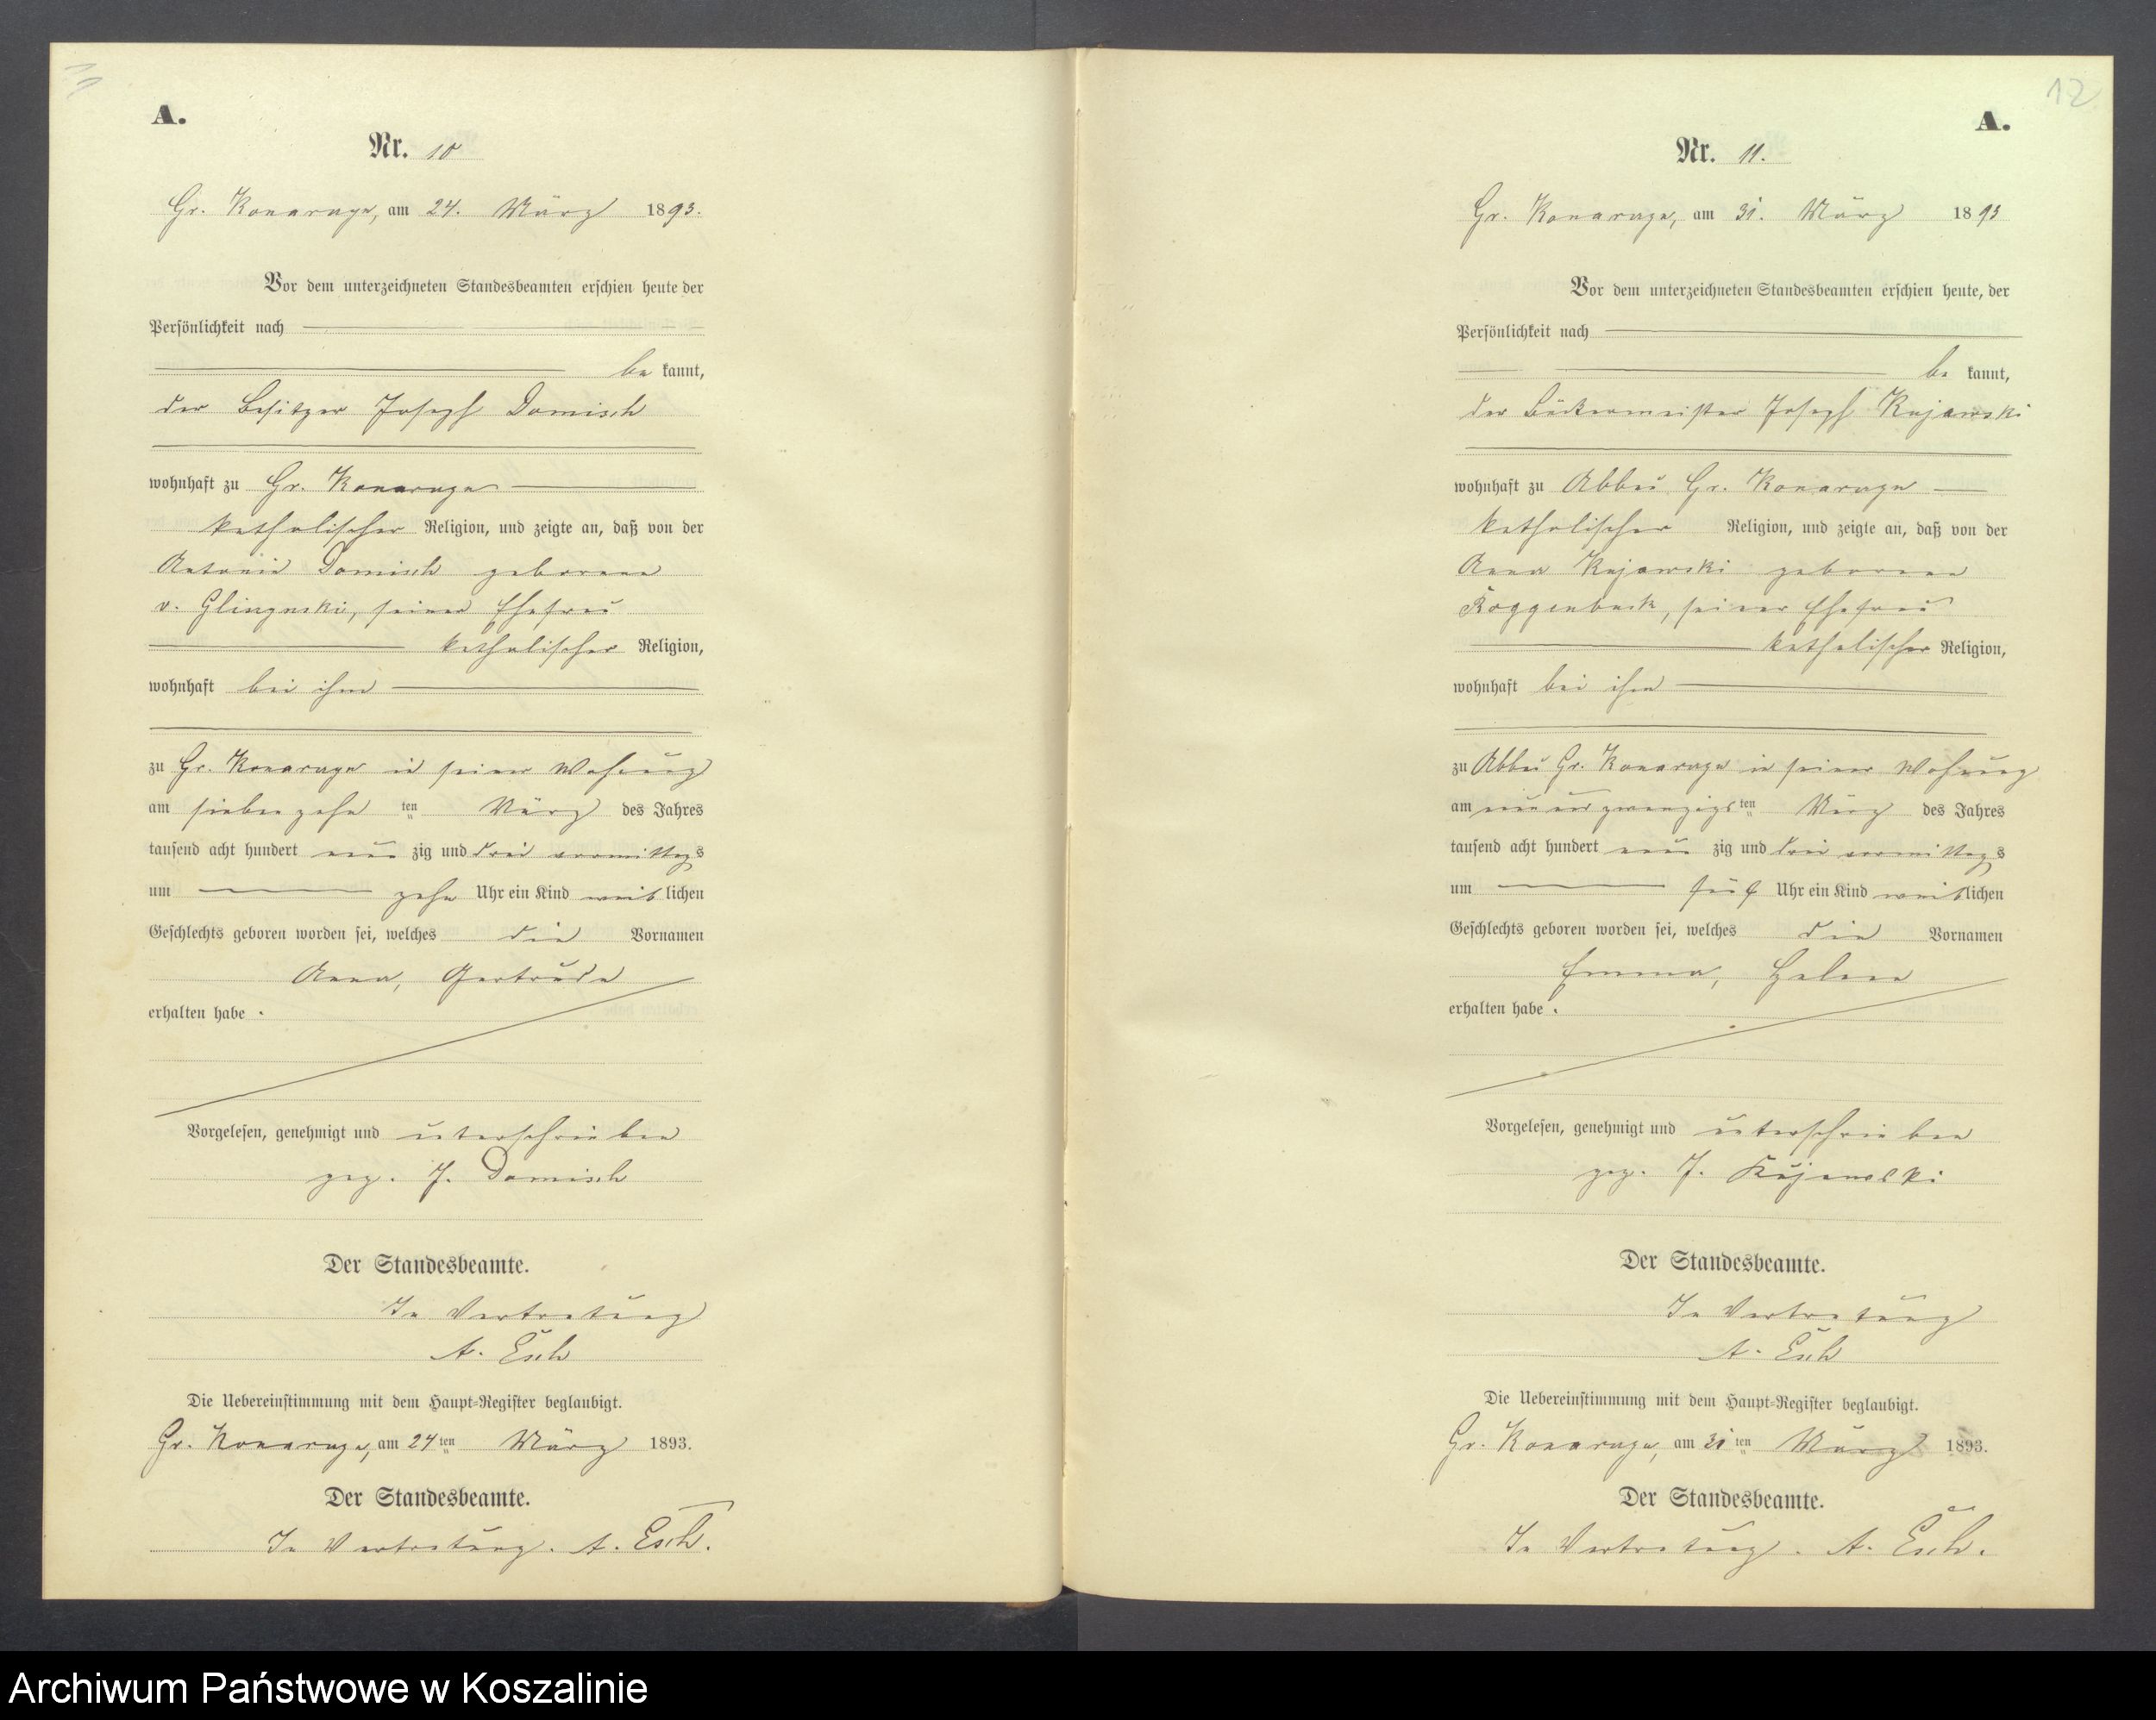 A.
Nr. 10
Gr. Konarzyn, am 24. März 1893.
Vor dem unterzeichneten Standesbeamten erschien heute der
Persönlichkeit nach
be kannt,
der Besitzer Joseph Domisch
wohnhaft zu Gr. Konarzyn
katholischer Religion, und zeigte an, daß von der
Antonie Domisch geborene
v. Glinynski, seiner Ehefrau
katholischer Religion,
wohnhaft bei ihm
zu Gr. Konarzyn in seiner Wohnung
am siebenzehn ten März des Jahres
tausend acht hundert neun zig und drei vormittags
um zehn Uhr ein Kind weib lichen
Geschlechts geboren worden sei, welches die Vornamen
Anna, Gertrude
erhalten habe.
Vorgelesen, genehmigt und unterschrieben
gez. J. Domisch
Der Standesbeamte.
In Vertretung
A. Esch
Die Uebereinstimmung mit dem Haupt-Register beglaubigt.
Gr. Konarzyn, am 24ten März 1893.
Der Standesbeamte.
In Vertretung. A. Esch.
12
A.
Nr. 11.
Gr. Konarzyn, am 31. März 1893
Vor dem unterzeichneten Standesbeamten erschien heute, der
Persönlichkeit nach
be kannt,
der Bäckermeister Joseph Kujawski
wohnhaft zu Abbau Gr. Konarzyn
katholischer Religion, und zeigte an, daß von der
Anna Kujawski geborene
Roggenbuck, seiner Ehefrau
katholischer Religion,
wohnhaft bei ihm
zu Abbau Gr. Konarzyn in seiner Wohnung
am neunundzwanzigsten März des Jahres
tausend acht hundert neun zig und drei vormittags
um fünf Uhr ein Kind weiblichen
Geschlechts geboren worden sei, welches die Vornamen
Emma, Helene
erhalten habe.
Vorgelesen, genehmigt und unterschrieben
gez. J. Kujawski
Der Standesbeamte.
In Vertretung
A. Esch
Die Uebereinstimmung mit dem Haupt-Register beglaubigt.
Gr. Konarzyn, am 31ten März 1893.
Der Standesbeamte.
In Vertretung. A. Esch.
Archiwum Państwowe w Koszalinie